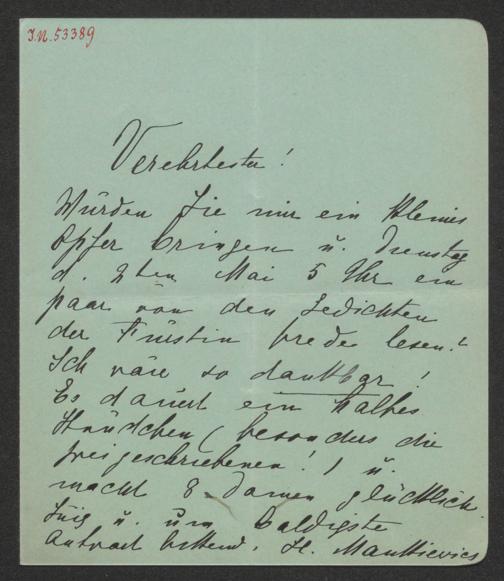 I.N. 53389
Verehrtester!
Würden Sie mir ein kleines
Opfer bringen u. Dienstag
d. 2ten Mai 5 Uhr ein
paar von den Gedichten
der Fürstin Wrede lesen!
Ich wäre so dankbar!
Es dauert ein halbes
Stündchen (besonders die
freigeschriebenen!) u.
macht 8 Damen glücklich.
u. um baldigste
Antwort bittend.